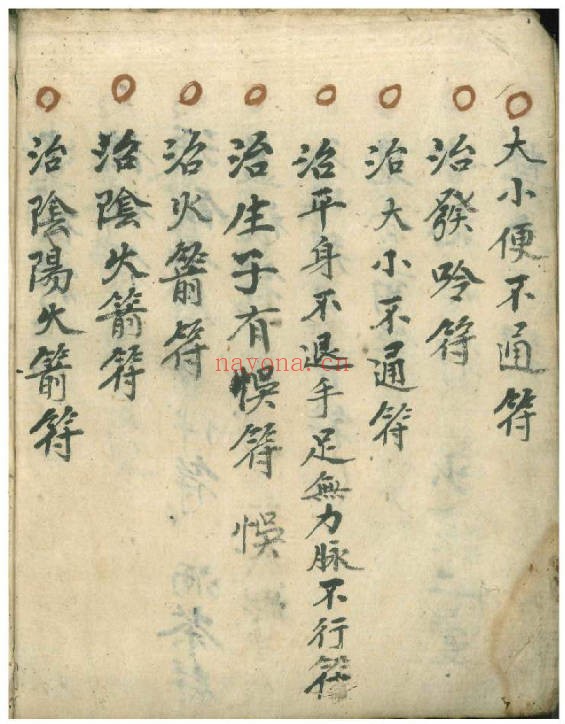 大小便不通符
治發呤符
治大小不通符
治平身不退手足無力脉不行符
治生子有悞符 悞
治火箭符
治陰火箭符
治陰陽火箭符
nayona.cn